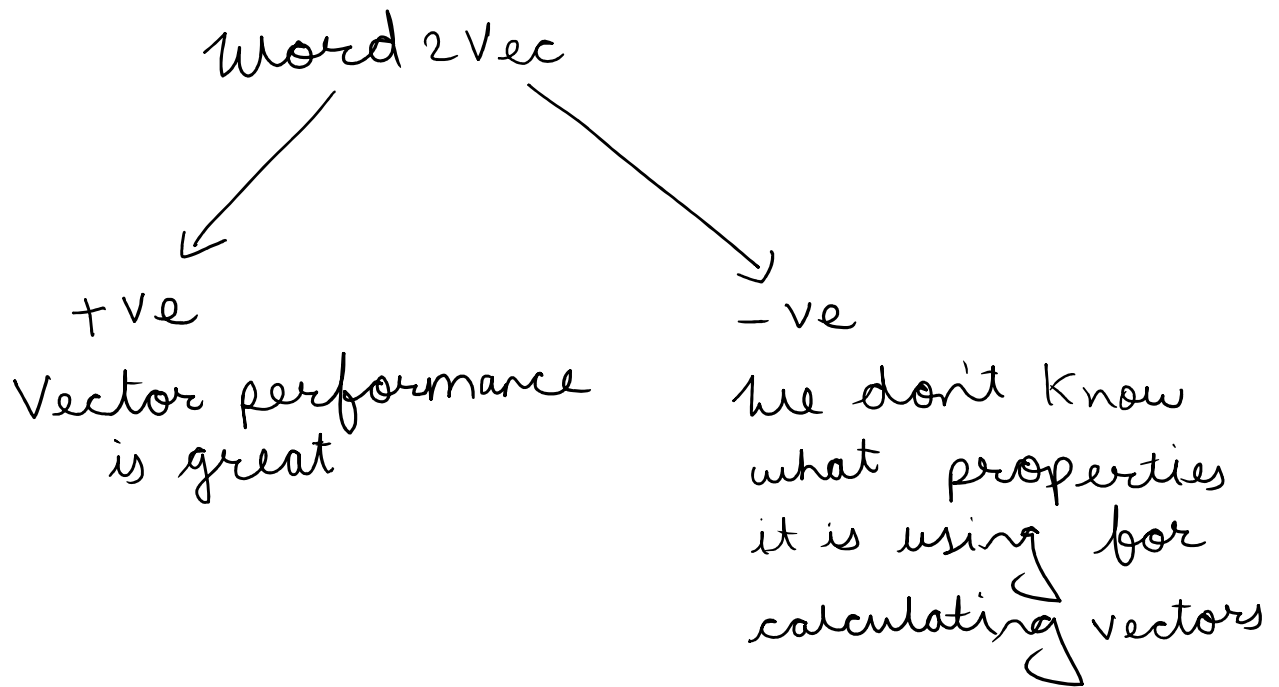 Word 2 Vec
+ve
Vector performance
is great
-ve
We don't know
what properties
it is using for
calculating vectors